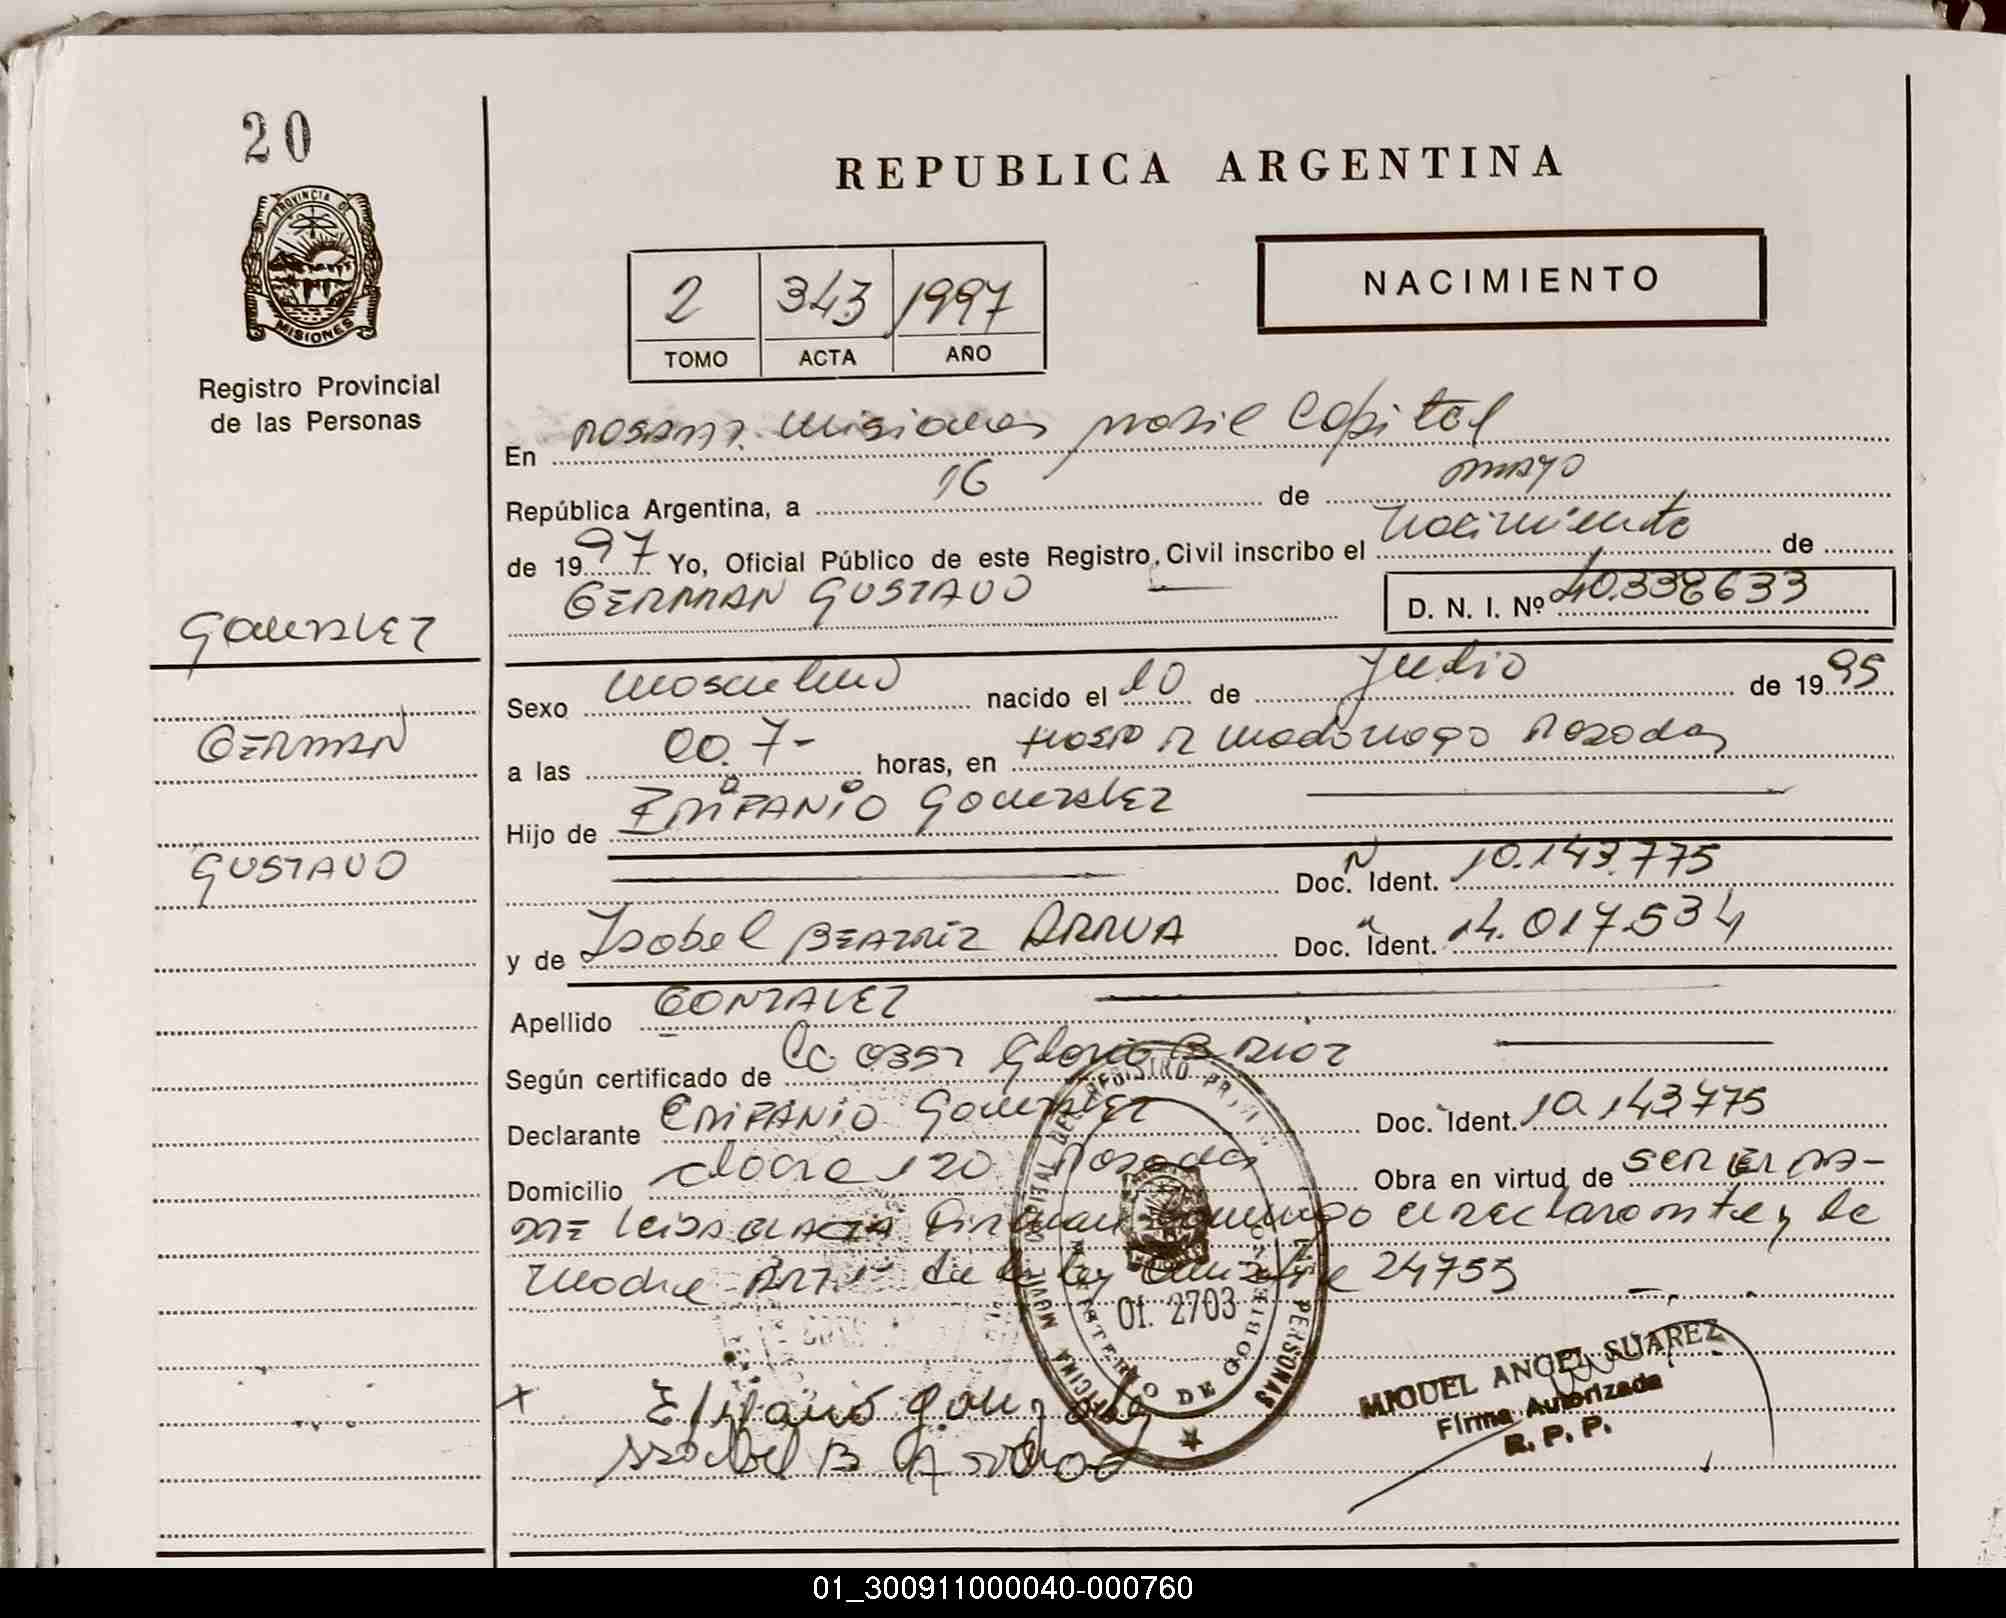 20
REPUBLICA ARGENTINA
PROVINCIA DE
MISIONES
Registro Provincial
de las Personas
2 343 1997
TOMO ACTA AÑO
NACIMIENTO
En Misiones Capital
República Argentina, a 16 de mayo
de 1997 Yo, Oficial Público de este Registro Civil inscribo el nacimiento de
GERMAN GUSTAVO D. N. I. Nº 40.338633
GONZALEZ
GERMAN
GUSTAVO
Sexo masculino nacido el 10 de Julio de 1995
a las 00.7- horas, en Hosp R Madariaga Posadas
Hijo de EPIFANIO GONZALEZ
Doc. Ident. 10.143.775
y de Isabel BEATRIZ ARRUA Doc. Ident. 14.017.534
Apellido GONZALEZ
Según certificado de Gloria B
Declarante EPIFANIO GONZALEZ Doc. Ident. 10.143775
Domicilio 120 Posadas Obra en virtud de SER EL PA-
DRE Firman el declarante y la
madre ART. de la ley
OFICINA MOVIL REGISTRO PERSONAS
MINISTERIO DE GOBIERNO
01. 2703
Epifanio Gonzalez
Issabel B A
MIGUEL ANGEL SUAREZ
Firma Autorizada
R. P. P.
01_300911000040-000760